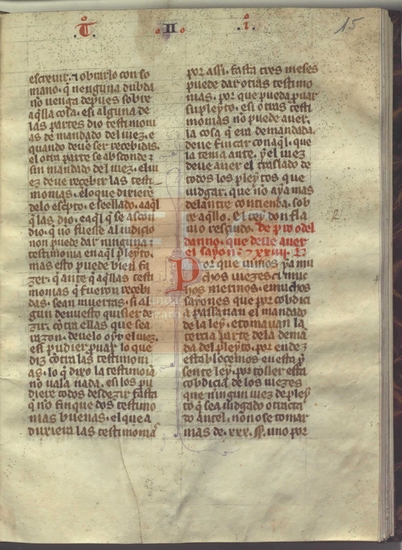 T II i.
15
escreuir. τ obrarlo con so
mano. q̃ nenguna dubda
no uenga depues sobre
aq̃lla cosa. e si alguna de
las partes dio testimoni
as de mandado del iuez. e
quando deue ser recebidas.
el otra parte se absconde
sin mandado del iuez. el iu
ez deue recebir las testi
monias. e lo que dixiere
delo escripto. e seellado. aq̃l
q̃ las dio. e aq̃l q̃ se ascon
dio. q̃ no fuesse al iudicio
non puede dar ninguna
testimonia en aq̃l pleyto.
mas esto puede bien fa
zer. q̃ ante q̃ aq̃llas testi
monias q̃ fueron recebi
das. sean muertas. si al
gun deuuesto quisier de
zir. contra ellas que sea
razon. deuelo oyr el iuez.
e si pudier prouar lo que
dize contra las testimoni
as. lo q̃ dixo la testimonia
no uala nada. e si los pu
diere todos desdezir fasta
q̃ no finque dos testimo
nias buenas. el que a
duxiera las testimonias
por assi. fasta tres meses
puede dar otras testimo
nias. por que pueda prouar
su pleyto. e si otras testi
monias no puede auer.
la cosa q̃ era demandada.
deue fincar con aq̃l. que
la tenia ante. y el iuez
deue auer el traslado de
todos los pleytos que
iudgar. que no aya mas
delantre contienda. sob
re aq̃llo. El rey don fla
uio rescindo. de pro o del
danno. que deue auer
el sayon. τ xxiiii.
Por que uimos ya mu
chos iuezes. e mu
chos merinos. e muchos
sayones que por cobdicia
passauan el mandado
de la ley. e tomauan la
tercia parte dela deman
da del pleyto. por ende
establecemos en esta pre
sente ley. por toller esta
cobdicia de los iuezes
que ningun iuez de pley
to q̃ sea iudgado o tracta
do ante el. non ose tomar
mas de. xxx. ss. uno por